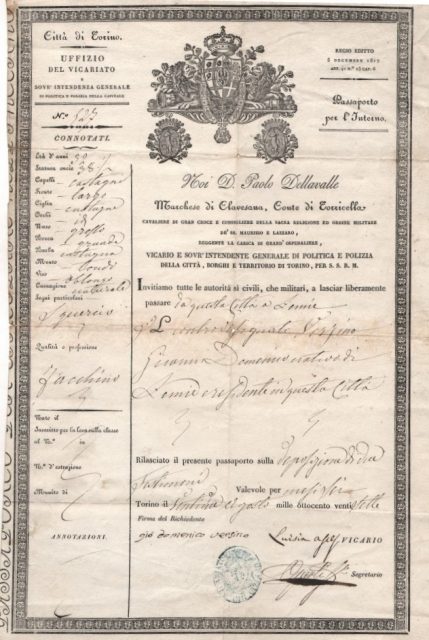 Città di Torino.
UFFIZIO
DEL VICARIATO
E
SOVR' INTENDENZA GENERALE
DI POLITICA E POLIZIA DELLA CAPITALE
N.º 523
CONNOTATI.
Età d'anni
Statura oncie 38
Capelli castagni
Fronte larga
Ciglia castagne
Occhi
Naso grosso
Bocca grande
Barba castagna
Mento tondo
Viso oblongo
Carnagione naturale
Segni particolari
Qualità o professione
Facchino
Nato il
Inscritto per la leva sulla classe
al N.º in
N.º d'estrazione
Munito di
ANNOTAZIONI.
REGIO EDITTO
Passaporto
per l'Interno.
Noi D. Paolo Dellavalle
Marchese di Clavesana, Conte di Torricella
CAVALIERE DI GRAN CROCE E CONSIGLIERE DELLA SACRA RELIGIONE ED ORDINE MILITARE
DE' SS. MAURIZIO E LAZZARO,
REGGENTE LA CARICA DI GRAND' OSPEDALIERE,
VICARIO E SOVR' INTENDENTE GENERALE DI POLITICA E POLIZIA
DELLA CITTÀ, BORGHI E TERRITORIO DI TORINO, PER S. S. R. M.
Invitiamo tutte le autorità sì civili, che militari, a lasciar liberamente
passare da questa Città a Lemie
Versino
Giovanni Domenico nativo di
Lemie e residente in questa Città
Rilasciato il presente passaporto sulla deposizione di due
testimoni Valevole per mesi sei
Torino il mille ottocento venti sette
Firma del Richiedente
gio domenico versino
VICARIO
Segretario